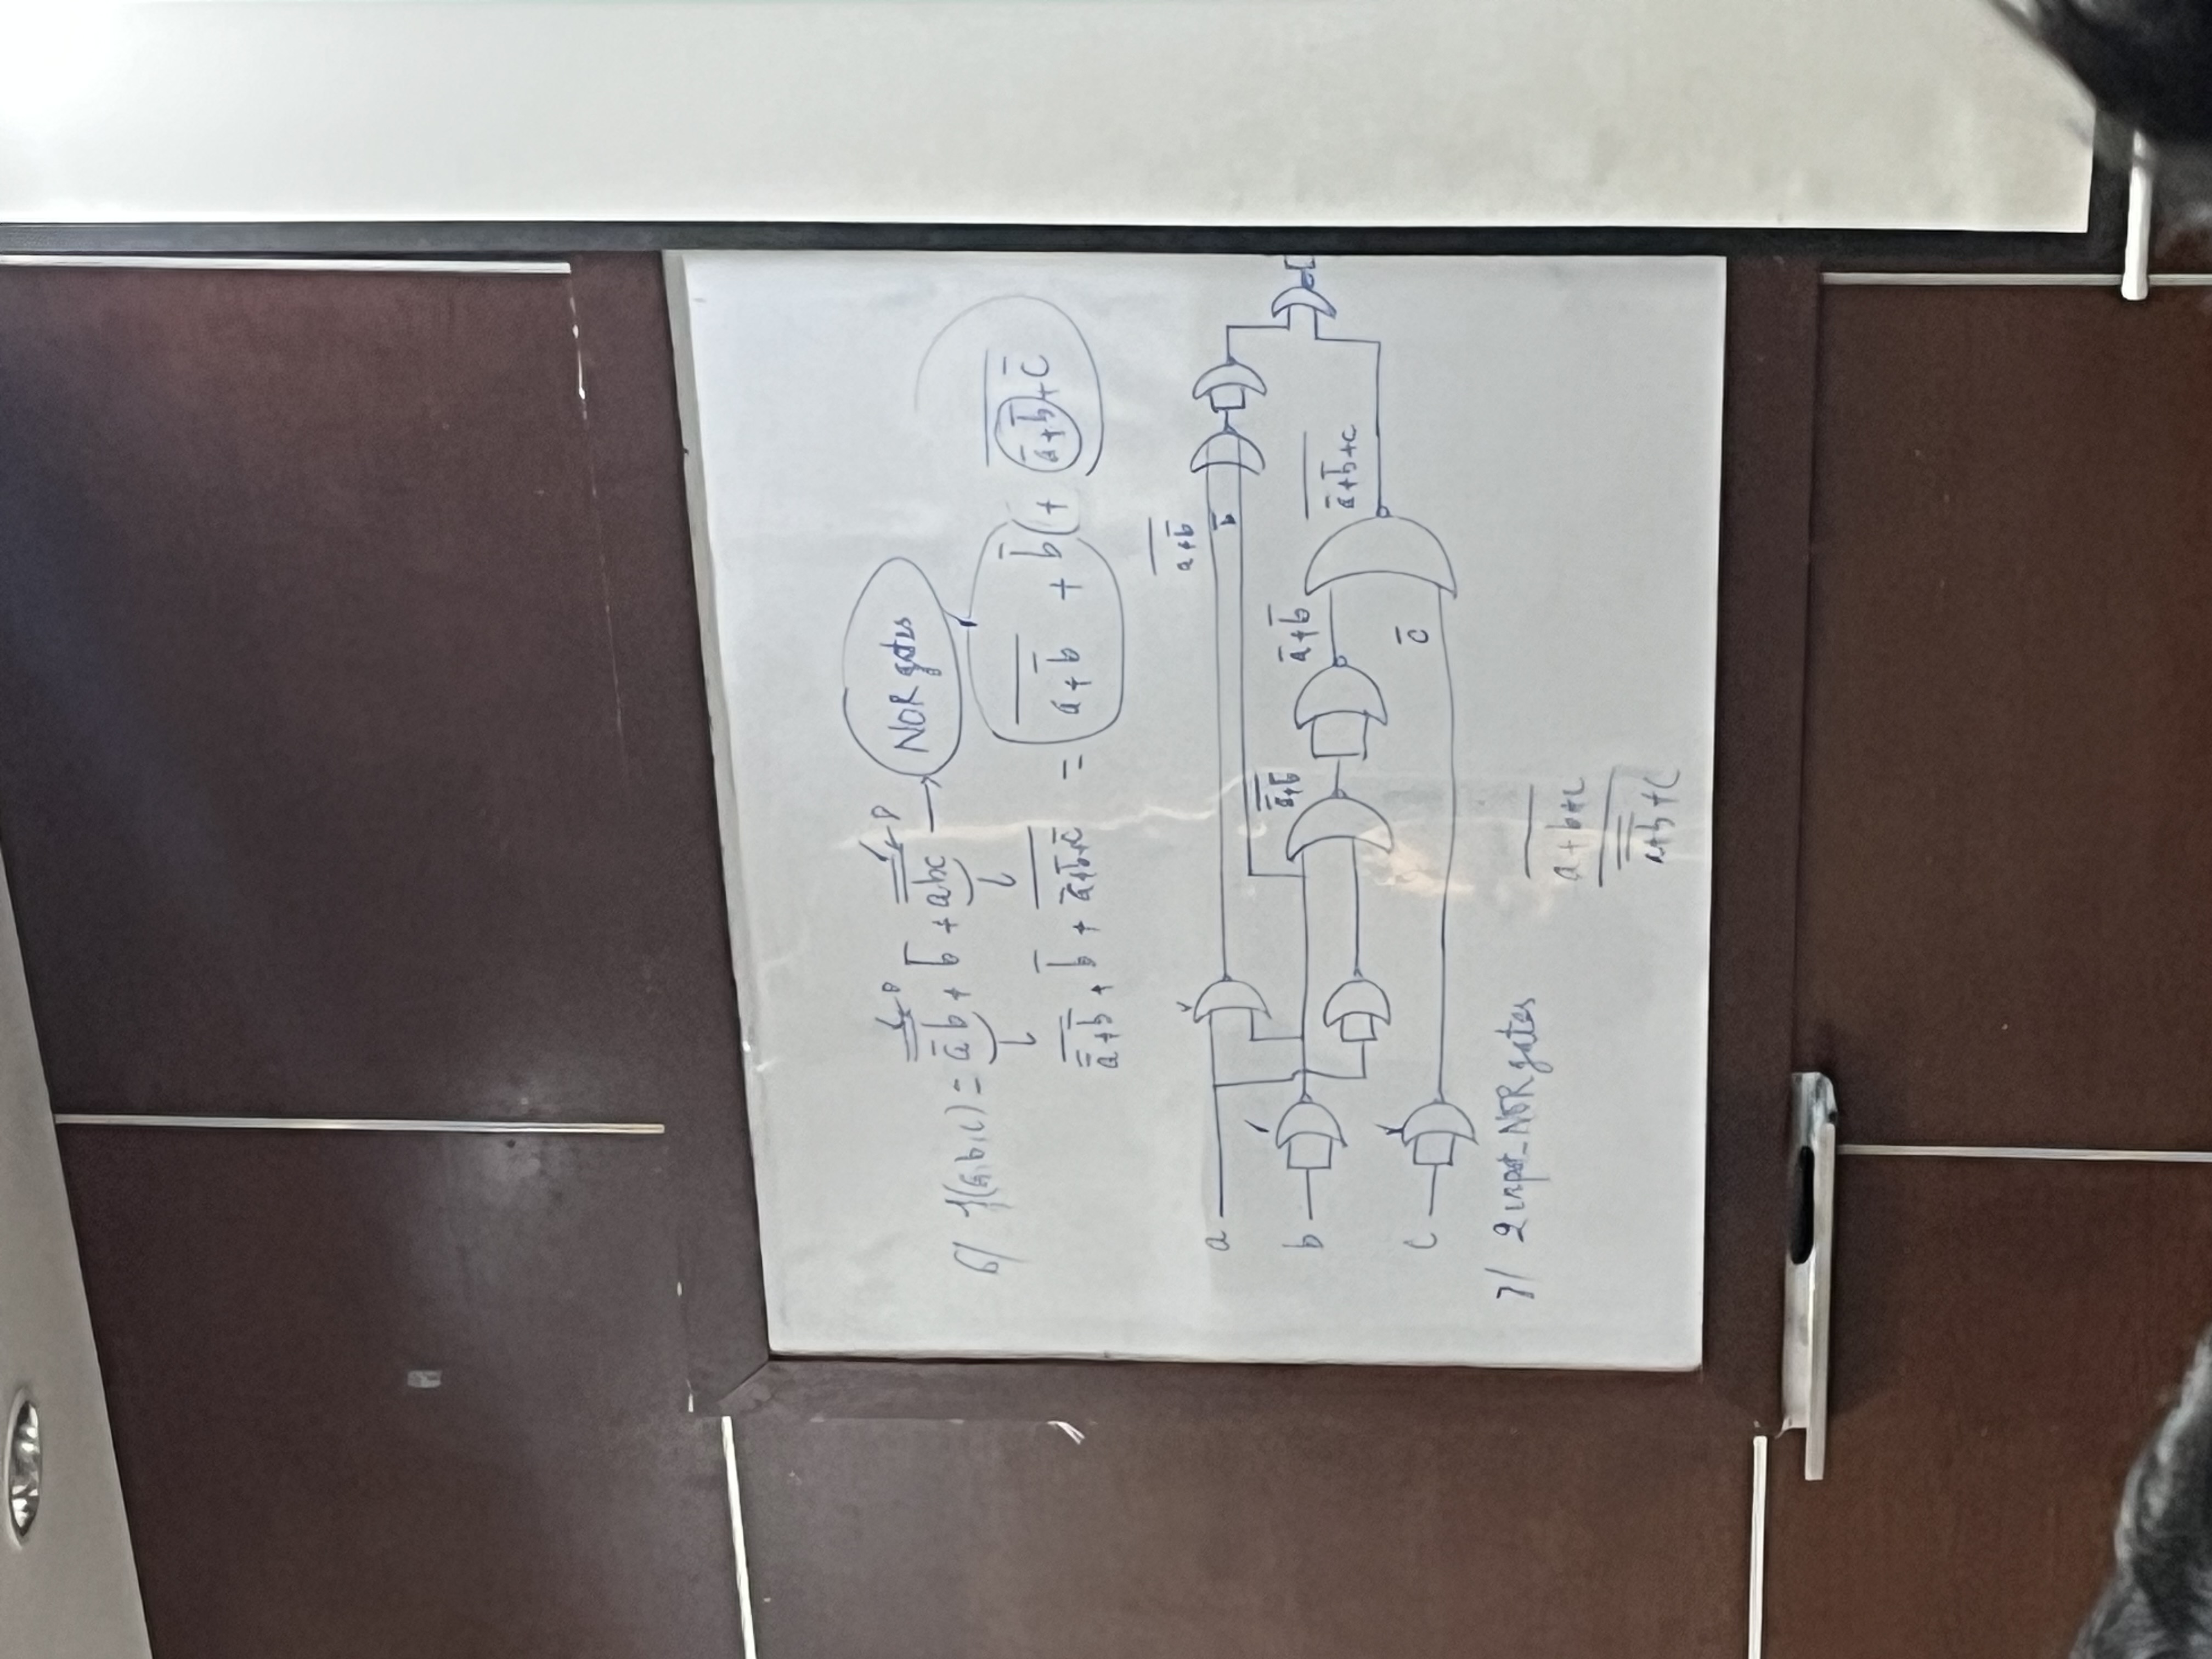 6/ f(a,b,c) = \overline{\overline{\bar{a}b}} + \bar{b} + \overline{\overline{abc}} → NOR gates
\overline{\bar{\bar{a}}+\bar{b}} + \bar{b} + \overline{\bar{a}+\bar{b}+\bar{c}} = \overline{a+\bar{b}} + \bar{b} + \overline{\bar{a}+\bar{b}+\bar{c}}
\overline{a+\bar{b}}
a
\bar{b}
\overline{\bar{a}+\bar{b}}
\bar{a}+\bar{b}
b
\overline{\bar{a}+\bar{b}+c}
\bar{c}
c
7/ 2 input_NOR gates
\overline{a+b+c}
\overline{\overline{\overline{a+b}}+c}